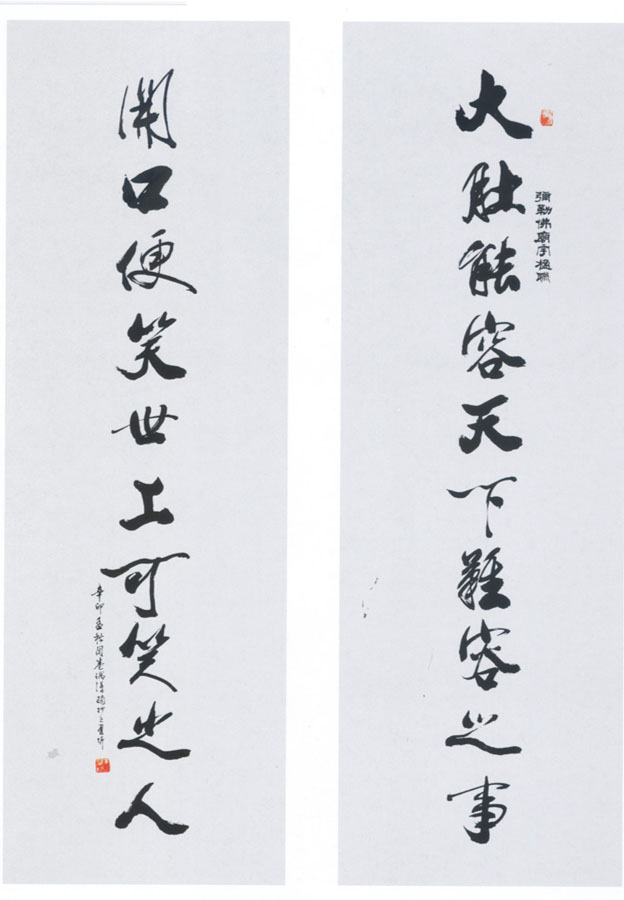 大肚能容天下難容之事
彌勒佛廟宇楹聯
開口便笑世上可笑之人
辛卯孟秋